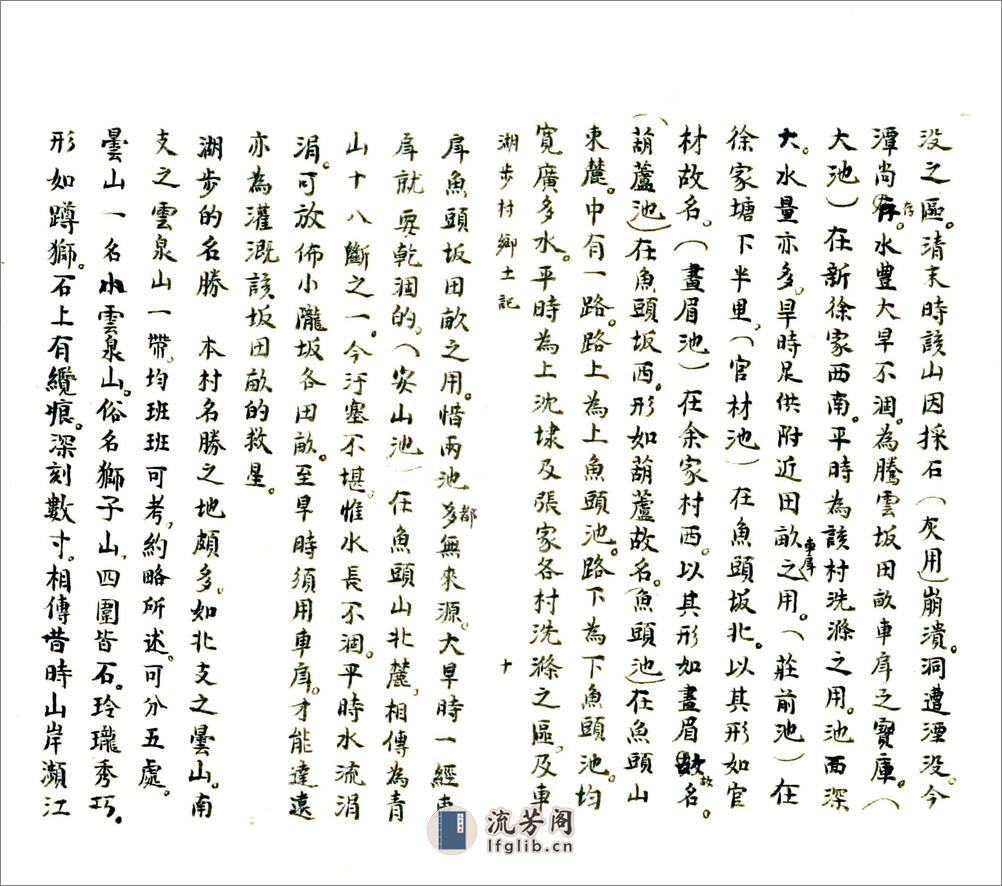 没之區。清末時該山因採石（灰用）崩潰。洞遭湮没。今
潭尚存存。水豊大旱不涸。為騰雲坂田畝車戽之寶庫。（
大池）在新徐家西南。平時為該村洗滌之用。池西深
大。水量亦多。旱時足供附近田畝車戽之用。（莊前池）在
徐家塘下半里，（官材池）在魚頭坂北。以其形如官
材故名。（畫眉池）在余家村西。以其形如畫眉故故名。
（葫蘆池）在魚頭坂西。形如葫蘆故名。（魚頭池）在魚頭山
東麓。中有一路。路上為上魚頭池。路下為下魚頭池。均
寬廣多水。平時為上沈埭及張家各村洗滌之區，及車
湖步村鄉土記 十
戽魚頭坂田畝之用。惜兩池多都無來源。大旱時一經車
戽就要乾涸的。（安山池）在魚頭山北麓，相傳為青
山十八斷之一。今汙塞不堪。惟水長不涸。平時水流涓
涓。可放佈小隴坂各田畝。至旱時須用車戽。才能達遠
亦為灌溉該坂田畝的救星。
湖步的名勝 本村名勝之地頗多。如北支之曇山。南
支之雲泉山一帶。均班班可考，約略所述。可分五處。
曇山一名小雲泉山。俗名獅子山，四圍皆石。玲瓏秀巧。
形如蹲獅。石上有纜痕。深刻數寸。相傳昔時山岸瀕江
流芳阁
lfglib.cn